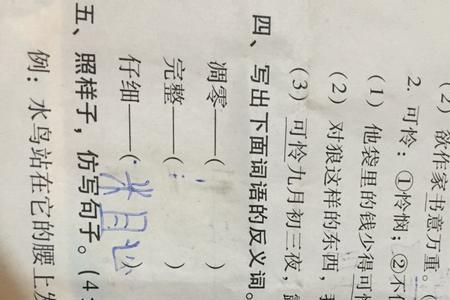 (2) 欲作家书意万重。
2. 可怜：①怜悯；②不
(1) 他袋里的钱少得可
(2) 对狼这样的东西，
(3) 可怜九月初三夜，
四、写出下面词语的反义词。
凋零——( )
完整——( )
仔细——(粗心)
五、照样子，仿写句子。(4
例：水鸟站在它的腰上发